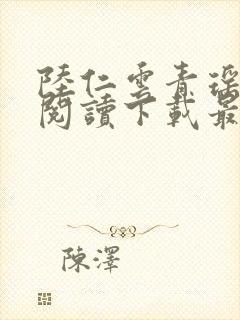 陸仁雲青瑤
閱讀下載最
陳澤